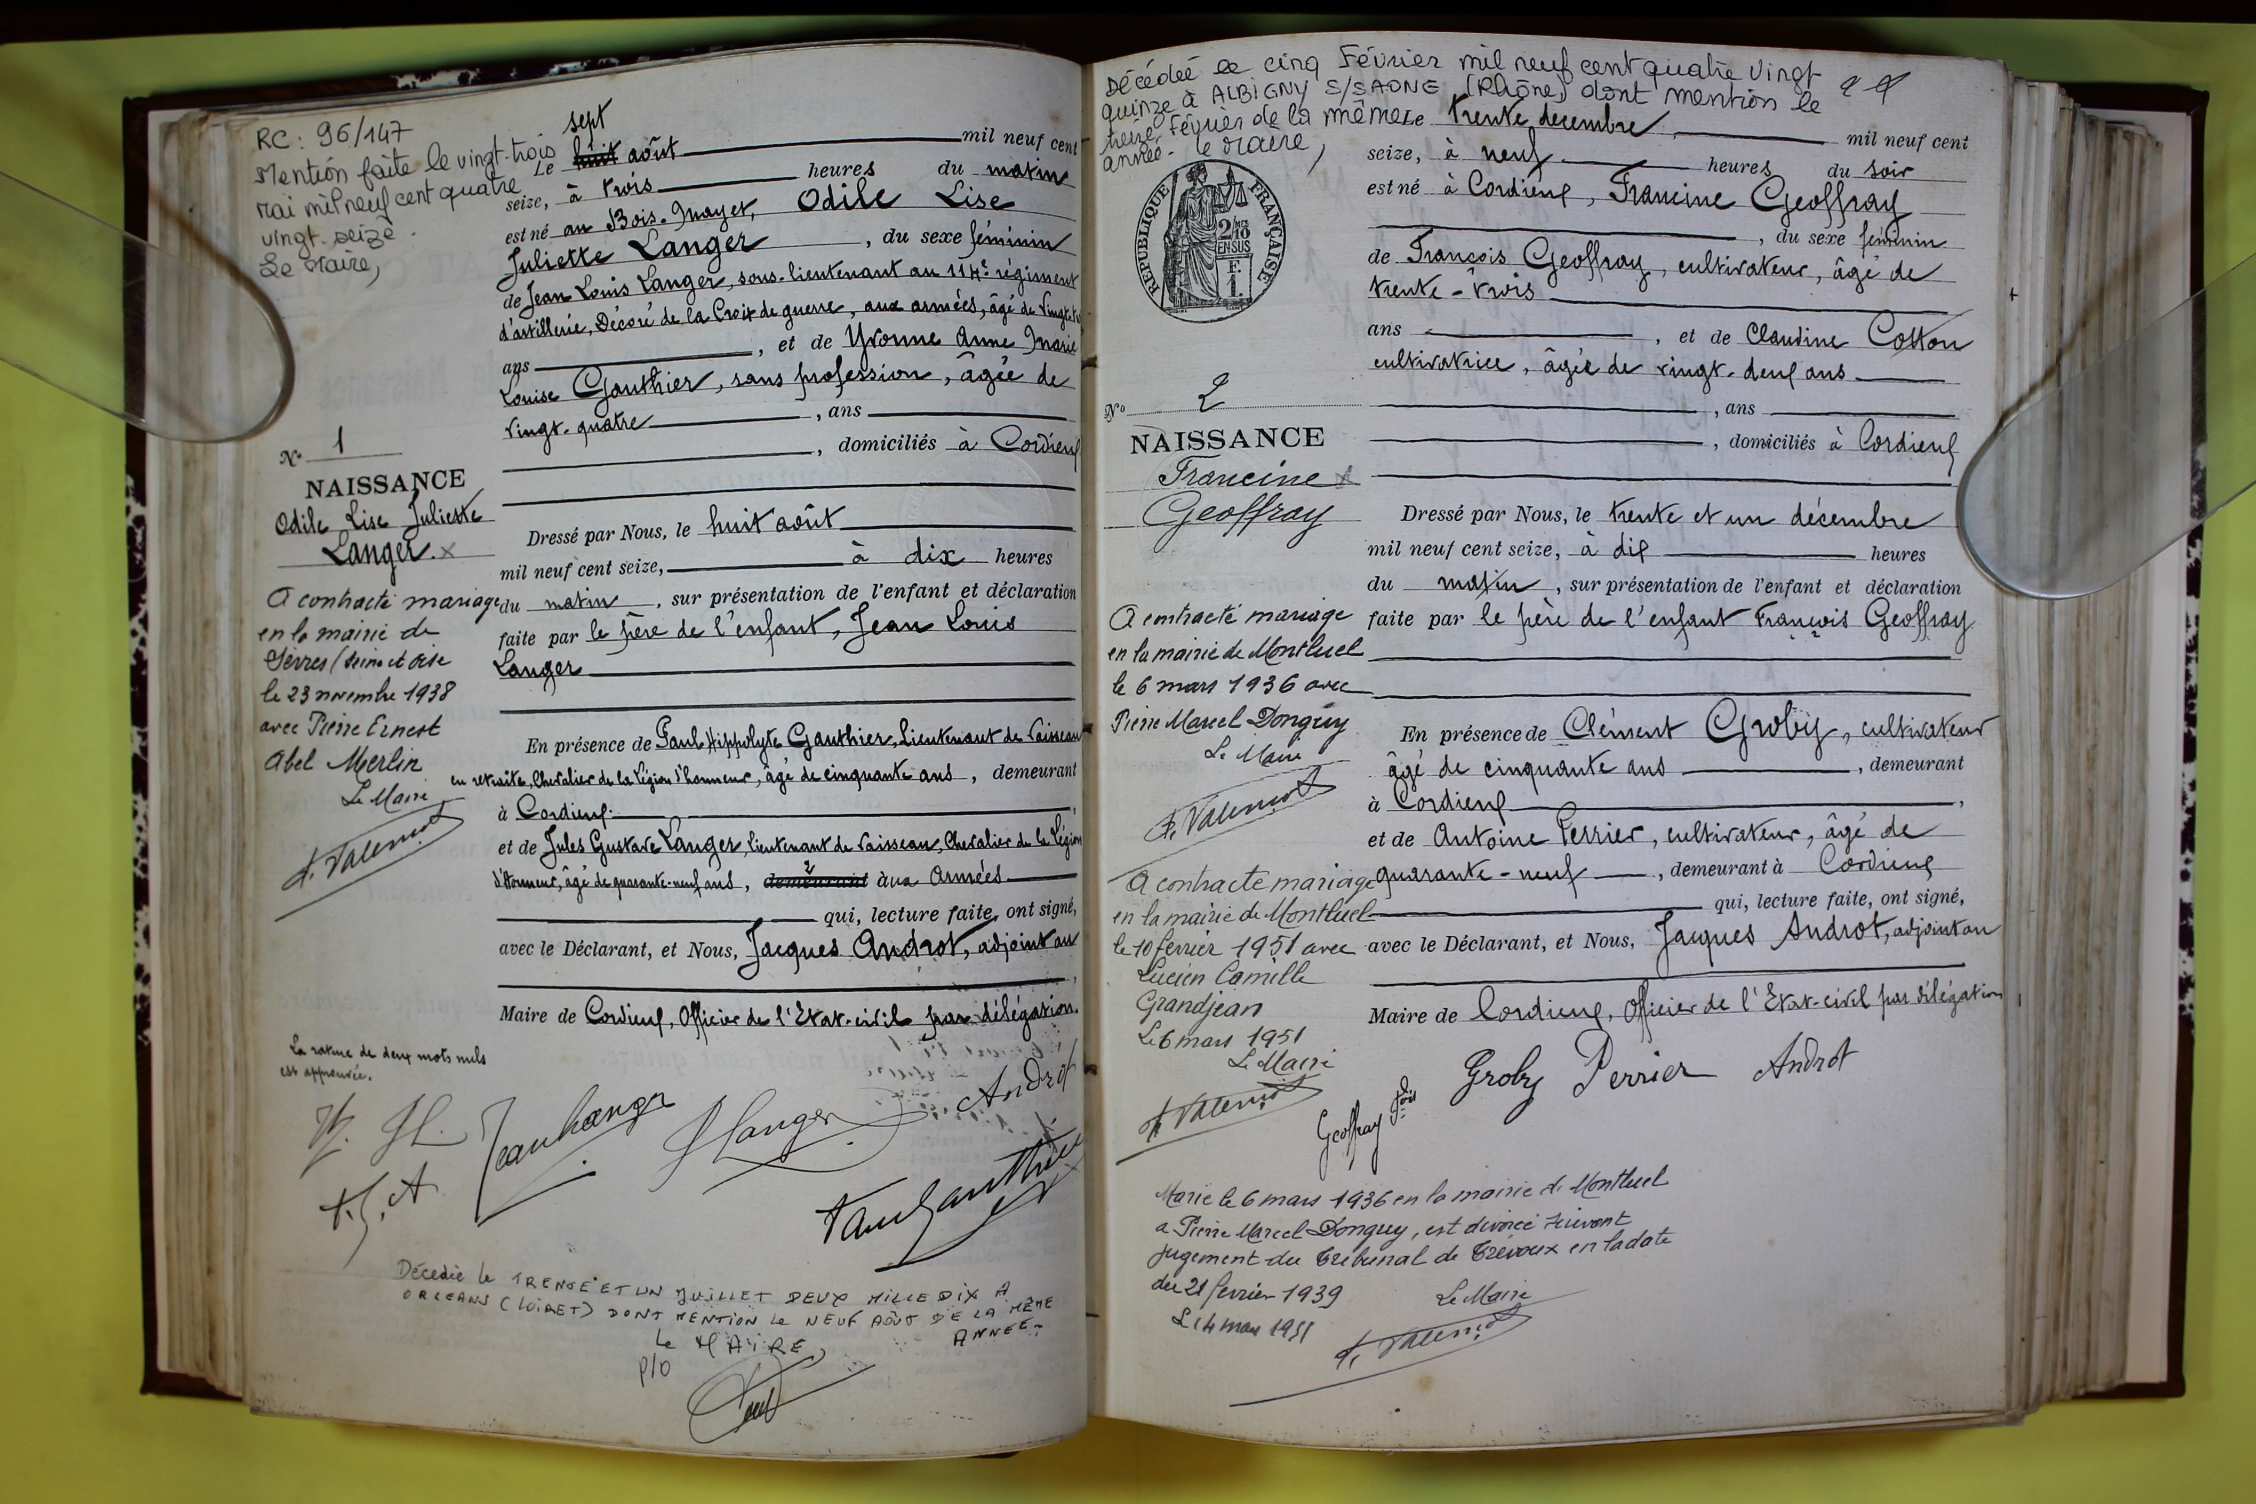 RC : 96/147
Mention faite le vingt-trois
mai mil neuf cent quatre
vingt-seize.
Le Maire,
sept
Le huit août mil neuf cent
seize, à trois heures du matin
est né au Bois-Mayet, Odile Lise
Juliette Langer, du sexe féminin
de Jean Louis Langer, sous-lieutenant au 114e régiment
d'artillerie, Décoré de la Croix de guerre, aux armées, âgé de
ans, et de Yvonne Anne Marie
Louise Gauthier, sans profession, âgée de
vingt-quatre, ans
, domiciliés à Cordieux
N° 1
NAISSANCE
Odile Lise Juliette
Langer. x
Dressé par Nous, le huit août
mil neuf cent seize, à dix heures
du matin, sur présentation de l'enfant et déclaration
faite par le père de l'enfant, Jean Louis
Langer
A contracté mariage
en la mairie de
Sèvres (Seine et Oise
le 23 novembre 1938
avec Pierre Ernest
Abel Merlin
Le Maire
En présence de Paul Hippolyte Gauthier, Lieutenant de Vaisseau
en retraite, Chevalier de la Légion d'honneur, âgé de cinquante ans, demeurant
à Cordieux.
et de Jules Gustave Langer, lieutenant de vaisseau, Chevalier de la Légion
d'Honneur, âgé de quarante-neuf ans, demeurant aux Armées
qui, lecture faite, ont signé,
avec le Déclarant, et Nous, Jacques Androt, adjoint au
Maire de Cordieux, Officier de l'Etat-civil par délégation.
La rature de deux mots nuls
est approuvée.
Jean Langer
Langer
Androt
Paul Gauthier
Décédée le TRENTE ET UN JUILLET DEUX MILLE DIX A
ORLEANS (LOIRET) DONT MENTION LE NEUF AOÛT DE LA MÊME
ANNEE.
Le MAIRE,
P/O
Décédée le cinq Février mil neuf cent quatre vingt
quinze à ALBIGNY S/SAONE (Rhône) dont mention le
treize Février de la même
année. Le Maire,
Le trente decembre, mil neuf cent
seize, à neuf heures du soir
est né à Cordieux, Francine Geoffray
, du sexe féminin
de François Geoffray, cultivateur, âgé de
trente-trois
ans, et de Claudine Cotton
cultivatrice, âgée de vingt-deux ans
, ans
, domiciliés à Cordieux
RÉPUBLIQUE FRANÇAISE
2/10
EN SUS
F.
1.
N° 2
NAISSANCE
Francine x
Geoffray
Dressé par Nous, le trente et un décembre
mil neuf cent seize, à dix heures
du matin, sur présentation de l'enfant et déclaration
faite par le père de l'enfant François Geoffray
A contracté mariage
en la mairie de Montluel
le 6 mars 1936 avec
Pierre Marcel Donguy
Le Maire
En présence de Clément Groby, cultivateur
âgé de cinquante ans, demeurant
à Cordieux,
et de Antoine Perrier, cultivateur, âgé de
quarante-neuf, demeurant à Cordieux
qui, lecture faite, ont signé,
avec le Déclarant, et Nous, Jacques Androt, adjoint au
Maire de Cordieux, Officier de l'Etat-civil par délégation
A contracté mariage
en la mairie de Montluel
le 10 février 1951 avec
Lucien Camille
Grandjean
Le 6 mars 1951
Le Maire
Geoffray Fois
Groby
Perrier
Androt
Marié le 6 mars 1936 en la mairie de Montluel
a Pierre Marcel Donguy, est divorcé suivant
jugement du Tribunal de Trévoux en la date
du 21 février 1939
Le Maire
Le 14 mars 1951